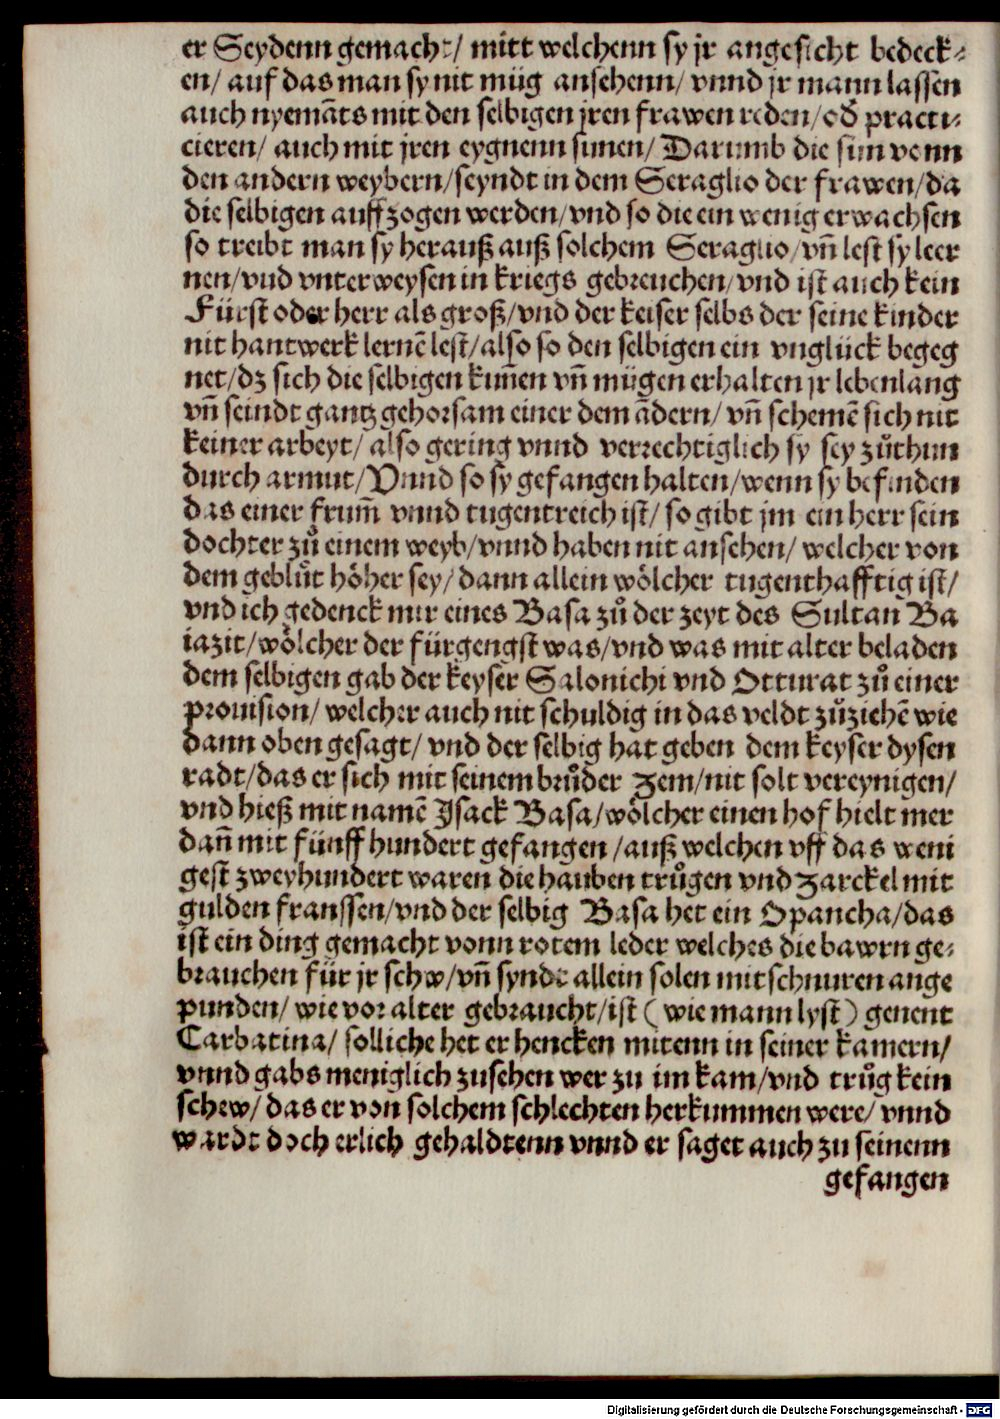 er Seydenn gemacht/ mitt welchenn sy jr angesicht bedeck⸗
en/ auf das man sy nit müg ansehenn/ vnnd jr mann lassen
auch nyemāts mit den selbigen jren frawen reden/ od̄ practi⸗
cieren/ auch mit jren eygnenn sünen/ Darumb die sün vonn
den andern weybern/ seyndt in dem Seraglio der frawen/ da
die selbigen auffzogen werden/ vnd so die ein wenig erwachsen
so treibt man sy herauß auß solchem Seraglio/ vn̄ lest sy leer
nen/ vnd vnterweysen in kriegs gebreuchen/ vnd ist auch kein
Fürst oder herr als groß/ vnd der keiser selbs der seine kinder
nit hantwerk lernē lest/ also so den selbigen ein vnglück begeg
net/ dz sich die selbigen kün̄en vn̄ mügen erhalten jr lebenlang
vn̄ seindt gantz gehorsam einer dem ādern/ vn̄ schemē sich nit
keiner arbeyt/ also gering vnnd verrechtiglich sy sey zůthun
durch armut/ Vnnd so sy gefangen halten/ wenn sy befinden
das einer frum̄ vnnd tugentreich ist/ so gibt jm ein herr sein
dochter zů einem weyb/ vnnd haben nit ansehen/ welcher von
dem geblůt höher sey/ dann allein wölcher tugenthafftig ist/
vnd ich gedenck mir eines Basa zů der zeyt des Sultan Ba
iazit/ wölcher der fürgengst was/ vnd was mit alter beladen
dem selbigen gab der keyser Salonichi vnd Otturat zů einer
prouision/ welcher auch nit schuldig in das veldt zůziehē wie
dann oben gesagt/ vnd der selbig hat geben dem keyser dysen
radt/ das er sich mit seinem brůder Zem/ nit solt vereynigen/
vnd hieß mit namē Isack Basa/ wölcher einen hof hielt mer
dan̄ mit fünff hundert gefangen/ auß welchen vff das weni
gest zweyhundert waren die hauben trůgen vnd Zarckel mit
gulden franssen/ vnd der selbig Basa het ein Opancha/ das
ist ein ding gemacht vonn rotem leder welches die bawrn ge⸗
brauchen für jr schw/ vn̄ synde allein solen mit schnuren ange
punden/ wie vor alter gebraucht/ ist ( wie mann lyst ) genent
Carbatina/ solliche het er hencken mitenn in seiner kamern/
vnnd gabs meniglich zusehen wer zu im kam/ vnd trůg kein
schew/ das er von solchem schlechten herkummen were/ vnnd
wardt doch erlich gehaldtenn vnnd er saget auch zu seinenn
gefangen
Digitalisierung gefördert durch die Deutsche Forschungsgemeinschaft - DFG